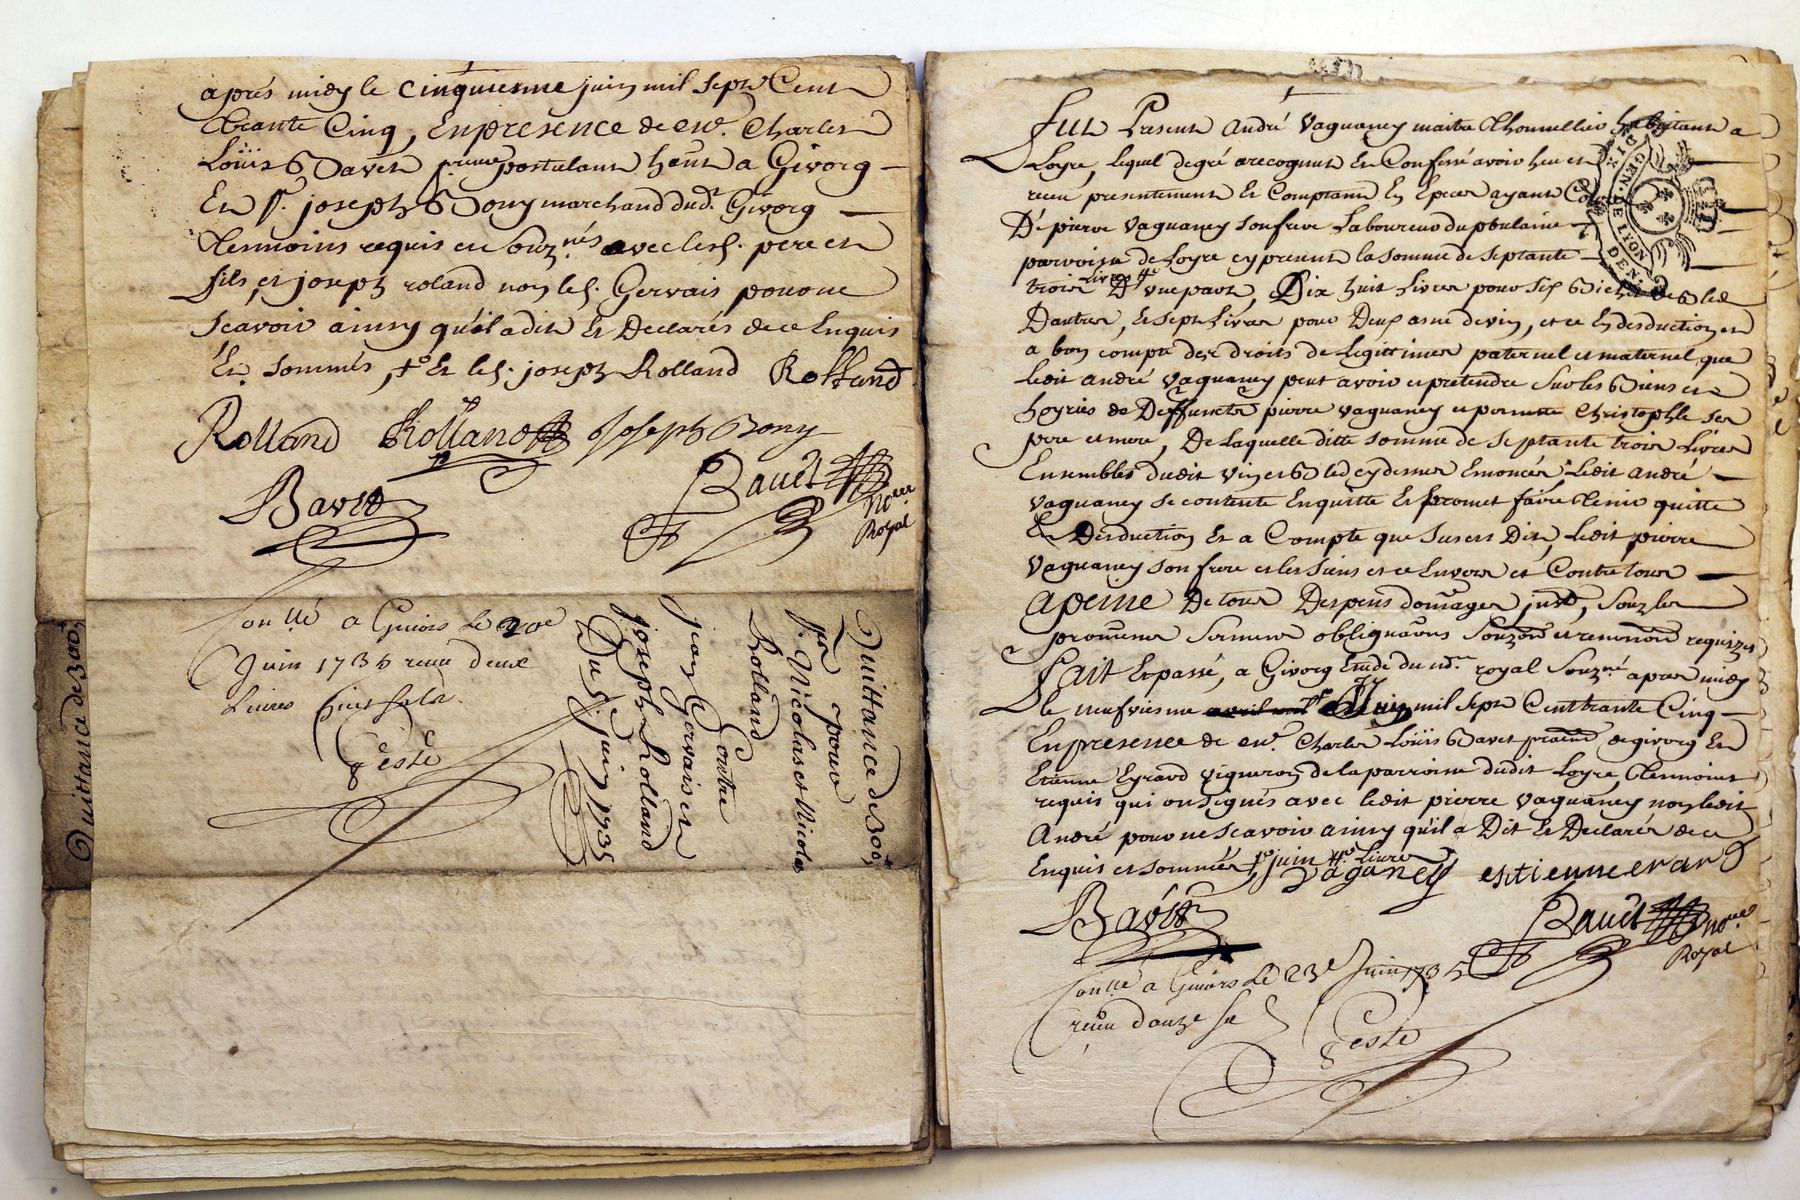 après midy le cinquiesme juin mil sept Cent
trante Cinq, En presence de eux. Charles
Loüis Bavet postulant hant a Givorg
Et Sr. joseph Bony marchand dud. Givorg
tesmoins requis et Souz.nés avec lesd. pere et
fils, et joseph roland non led. Gervais pour ne
Scavoir ainsy qu'il a dit Et Declarés de ce Enquis
Et Sommés, Et led. joseph Rolland Rolland
Rolland Rolland Joseph Bony
Bavet Bavet
No.re
Royal
Con.llé a Givors le 20e
Juin 1735 receu deux
Livres huit sols
Geste
Quittance de 300
pour
Sr. Nicolas et Nicolas
Rolland
Contre
jean Gervais et
joseph Rolland
Du 5 juin 1735
Quittance de 300
Fut Present André Vaguaney maitre thonnellier habitant a
Loyre, lequel de gré a recognut Et Confessé avoir heu et
receu presentement Et Comptant En Epeces ayant
De pierre Vaguaney son frere Laboureur du
parroisse de Loyre cy present la somme de septante
trois Livres D'une part, Dix huit Livres pour Six Bichets Bled
D'autre, et sept Livres pour Deux asné de vin, et ce En desduction et
a bon compte des droits de Legitimes paternel et maternel que
ledit andré Vaguaney peut avoir et pretendre sur les Biens et
hoyries de Deffuncts pierre vaguaney et pernette Christophle ses
pere et mere, De laquelle ditte somme de septante trois Livres
Ensembles dudit vin et Bled cy dessus Enoncés ledit andré
Vaguaney se contente En quitte Et promet faire tenir quitte
En Desduction Et a Compte que Sus est Dit, ledit pierre
Vaguaney son frere et les Siens et ce Envers et Contre tous
A peine De tous Despens domages
promesses Serment obligua͠ons requizes
Fait Et passé, a Givorg Etude du no.re royal Souz.né apres midy
le neufviesme avril juin mil sept Cent trante Cinq
En presence de eux. Charles Loüis Bavet de givorg Et
Etienne Eyrard vigneron de la parroisse dudit Loyre, tesmoins
requis qui ont signés avec ledit pierre Vaguaney non ledit
André pour ne Scavoir ainsy qu'il a Dit Et Declarés de ce
Enquis et sommés, juin Livres
vaganey estienne erard
Bavet Bavet No.re
Royal
Con.llé a Givors le 23e Juin 1735
receu douze s
Geste
GEN. DE LYON